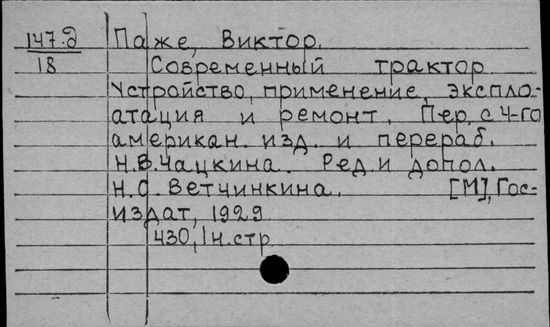 147.д Паже, Виктор.
18 Современный трактор
Устройство, применение, экспло-
атация и ремонт. Пер. с 4-го
американ. изд. и перераб.
Н.В. Чацкина. Ред. и допол.
Н.С. Ветчинкина. [М], Гос-
издат, 1929
430, 1 н. стр